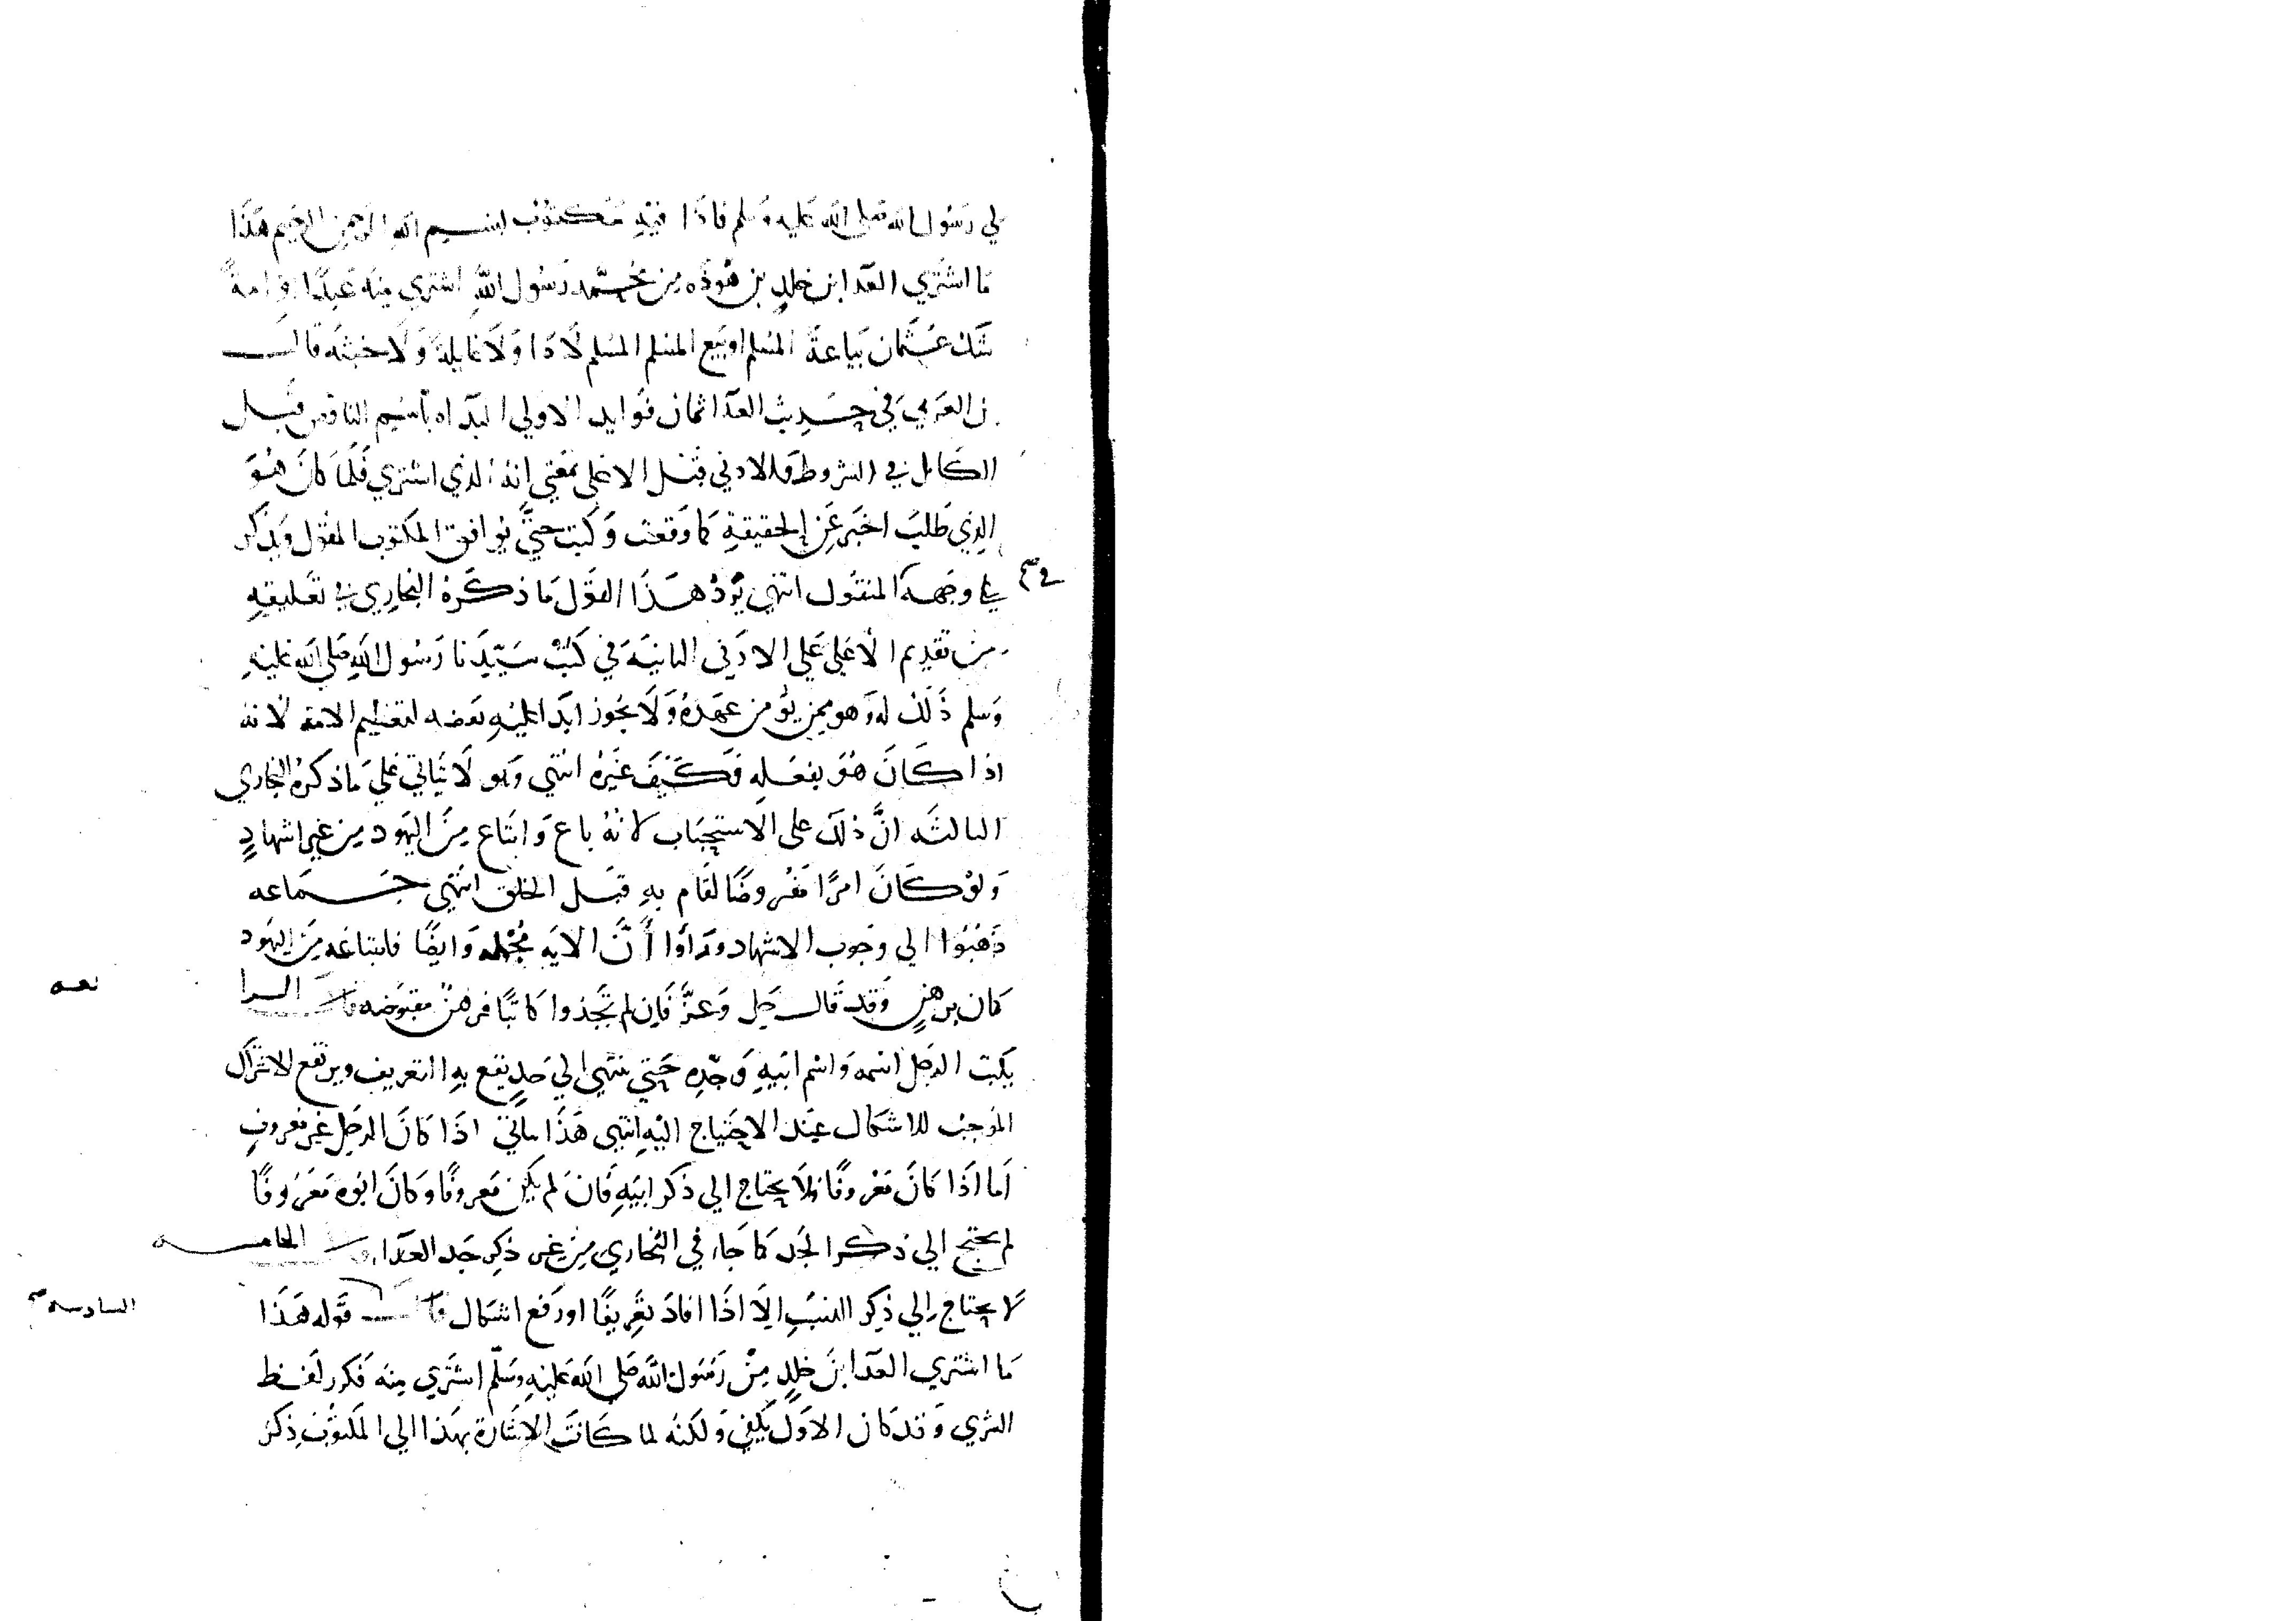 لي رسول الله صلى الله عليه وسلم فاذا فيه مكتوب بسم الله الرحمن الرحيم هذا
ما اشتري العدا ابن خلد بن هوذه من محمد رسول الله اشتري منه عبدا او امة
شك عثمان بياعة المسلم او بيع المسلم المسلم لا دا ولا غايلة ولا خبثه قال
ن العربي في حديث العدا ثمان فوايد الاولي البداه باسم الناقص قبل
الكامل في الشروط والادني قبل الاعلي بمعني انه الذي اشتري فلما كان هو
الذي طلب اخبر عن الحقيقة كما وقعت وكتب حتي يوافق المكتوب المقول ويذكر
علي وجهه المنقول انتهي يرد هذا القول ما ذكره البخاري في تعليقه
من تقديم الاعلي علي الادني الثانيه في كتب سيدنا رسول الله صلي الله عليه
وسلم ذلك له وهو ممن يؤمن عهده ولا يجوز ابدا عليه نقضه لتعظيم الامة لانه
اذا كان هو يفعله فكيف غيره انتهي وهو لا يتاتي علي ما ذكره البخاري
الثالثه ان ذلك على الاستحباب لانه باع وابتاع من اليهود من غير اشهاد
ولو كان امرا مفروضا لقام به قبل الخلق انتهي جماعه
ذهبوا الي وجوب الاشهاد وراوا أن الايه محكمه وايضا فابتياعه من اليهود
كان برهن وقد قال جل وعز فإن لم تجدوا كاتبا فرهن مقبوضه قال الرا
بعه
يكتب الرجل اسمه واسم ابيه وجده حتي ينتهي الي حد يقع به التعريف ويرتفع الاشتراك
الموجب للاشكال عند الاحتياج اليه انتهي هذا ياتي اذا كان الرجل غير معروف
أما اذا كان معروفا فلا يحتاج الي ذكر ابيه فان لم يكن معروفا وكان ابوه معروفا
لم يحتج الي ذكر الجد كما جاء في البخاري من غير ذكر جد العدا قال الخامسه
لا يحتاج الي ذكر النسب الا اذا افاد تعريفا او رفع اشكال قال قوله هذا
السادسه صح
ما اشتري العدا بن خلد من رسول الله صلى الله عليه وسلم اشتري منه فكرر لفظ
الشري وقد كان الاول يكفي ولكنه لما كانت الاشارة بهذا الي المكتوب ذكر